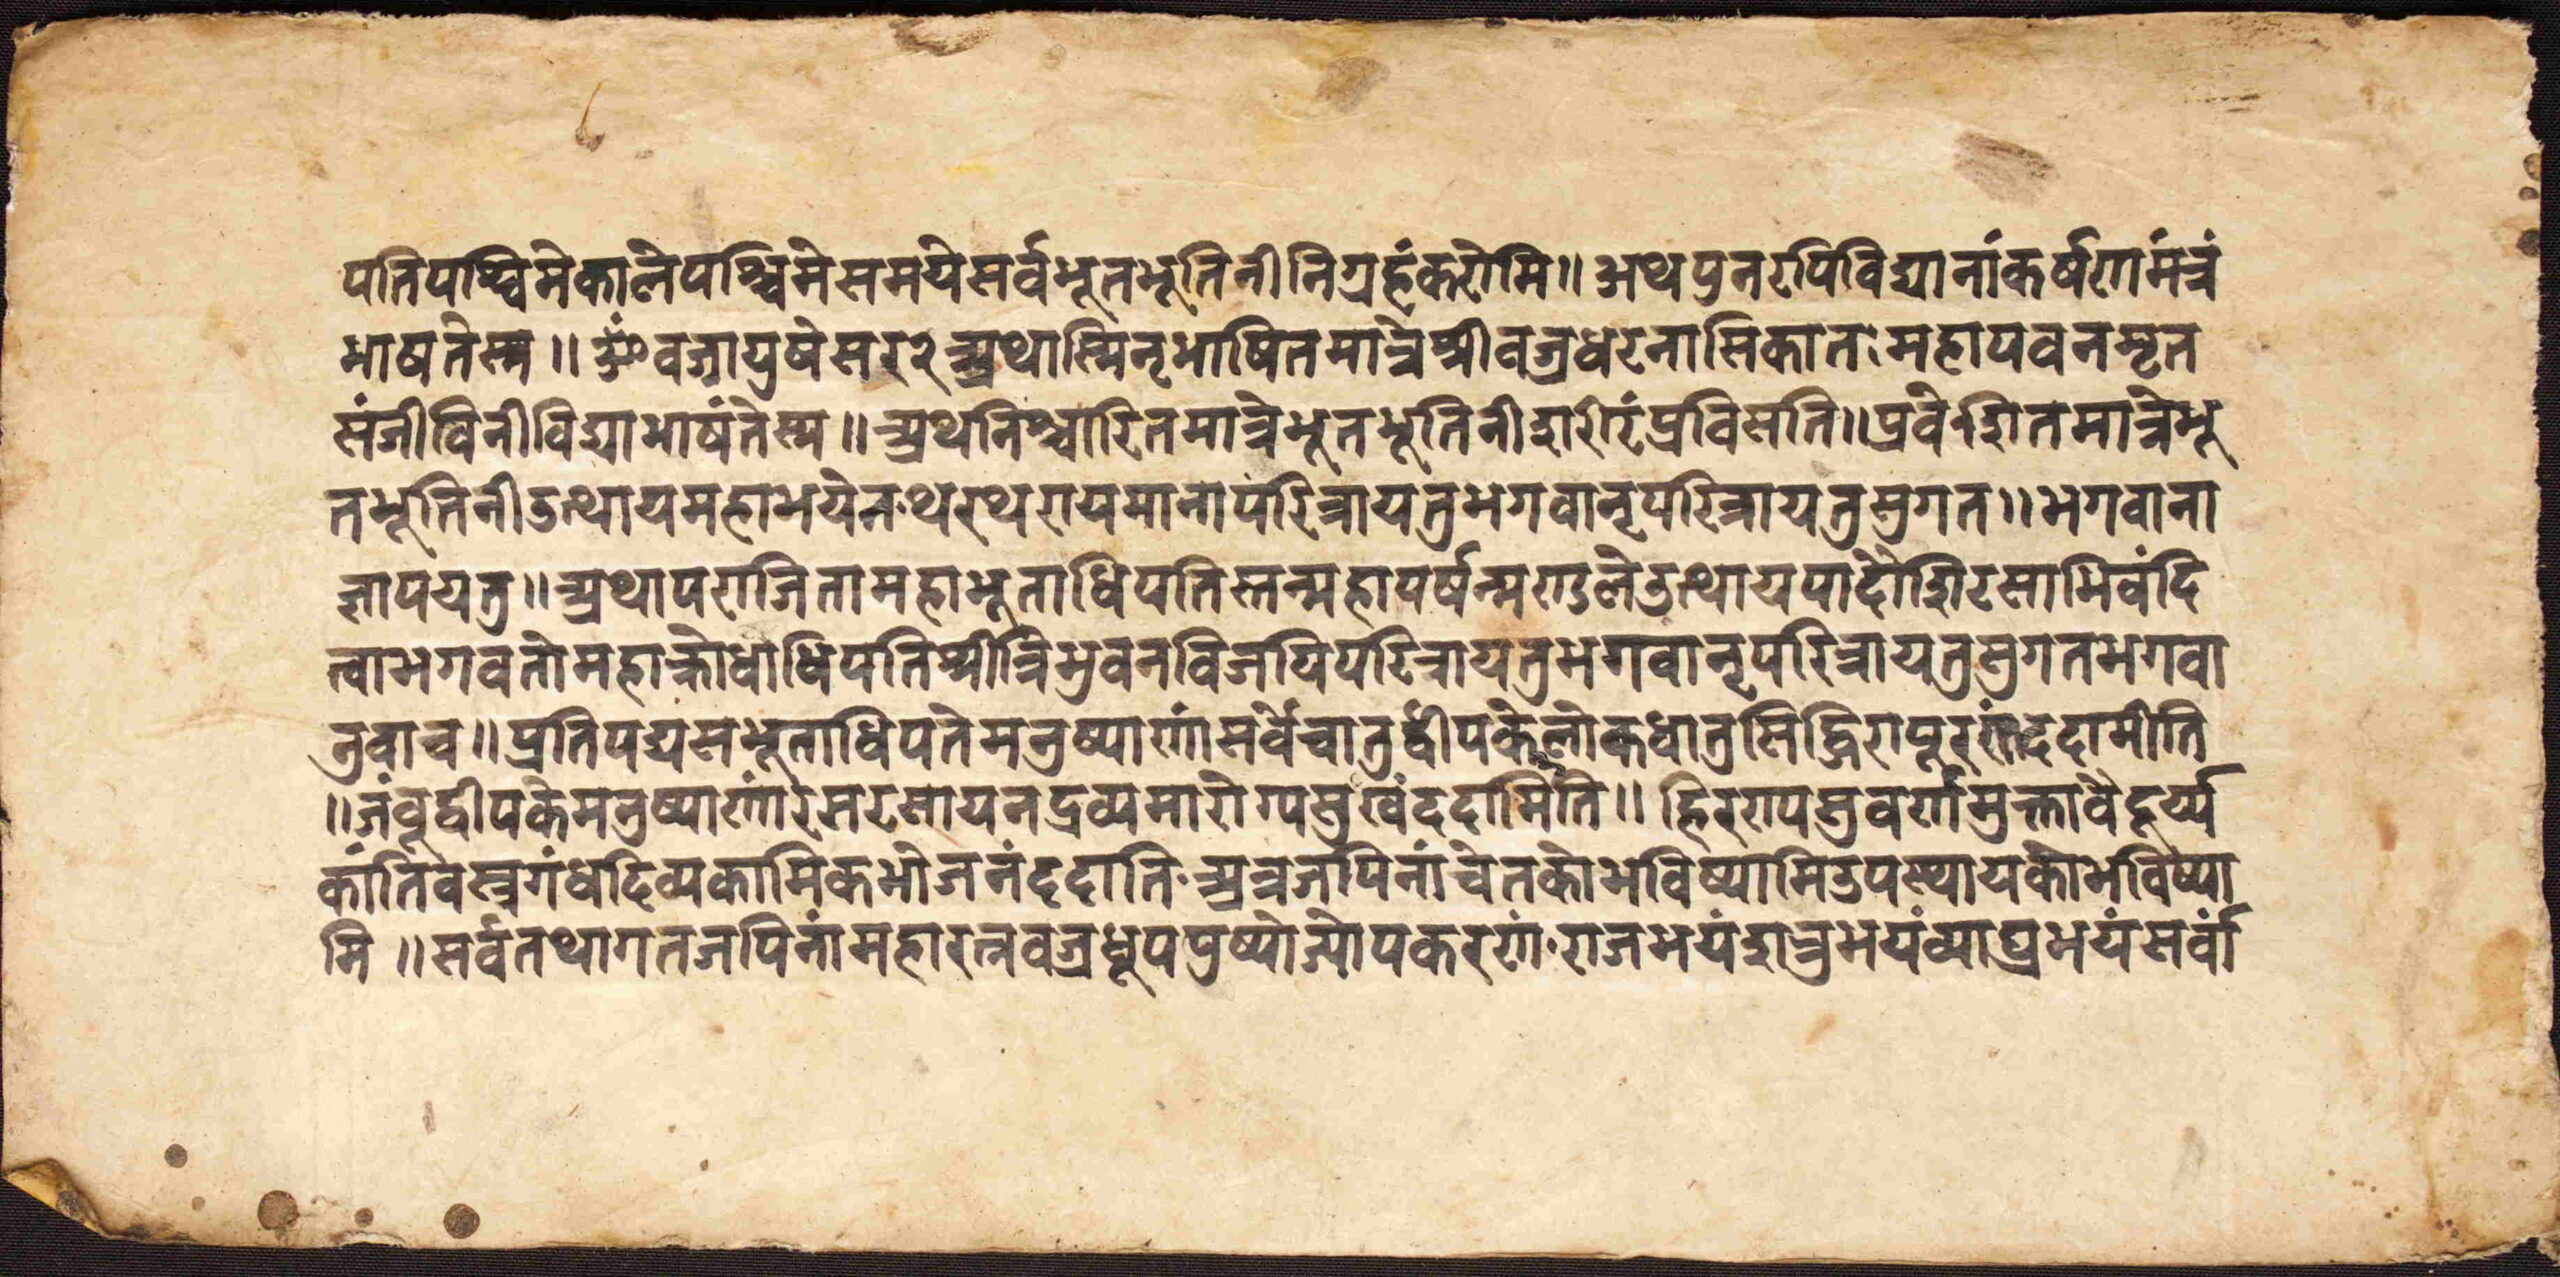 पतिपश्चिमेकालेपश्चिमेसमयेसर्वभूतभूतिनीनिग्रहंकरोमि॥अथपुनरपिविद्यानांकर्षणमंत्रं
भाषतेस्म॥ॐवज्रायुषेसर२अथास्मिनृभाषितमात्रेश्रीवज्रधरनासिकातःमहापवनमृत
संजीविनीविद्याभाषंतेस्म॥अथनिश्चारितमात्रेभूतभूतिनीशरीरंप्रविसति॥प्रवेशितमात्रेभू
तभूतिनीउत्थायमहाभयेनथरथरायमानापरित्रायतुभगवानृपरित्रायतुसुगत॥भगवाना
ज्ञापयतु॥अथापराजितामहाभूताधिपतिस्तन्महापर्षन्मण्डलेउत्थायपादौशिरसाभिवंदि
त्वाभगवतोमहाक्रोधोधिपतिश्रीत्रिभुवनविजयिपरित्रायतुभगवानृपरित्रायतुसुगतभगवा
नुवाच॥प्रतिपद्यसभूताधिपतेमनुष्याणांसर्वेचातुर्द्वीपकेलोकधातुसिद्धिरापूरणंददामीति
॥जंवूद्वीपकेमनुष्याणांरसरसायनद्रव्यमारोग्यसुखंददामिति॥हिरण्यसुवर्णमुक्तावैदूर्य्य
कांतिवस्त्रगंधदिव्यकामिकभोजनंददातिअत्रजपिनांचेतकोभविष्यामिउपस्थायकोभविष्या
मि॥सर्वतथागतजपिनांमहारत्नवज्रधूपपुष्पोज्योपकरणंराजभयंशत्रुभयंव्याघ्रभयंसर्वां